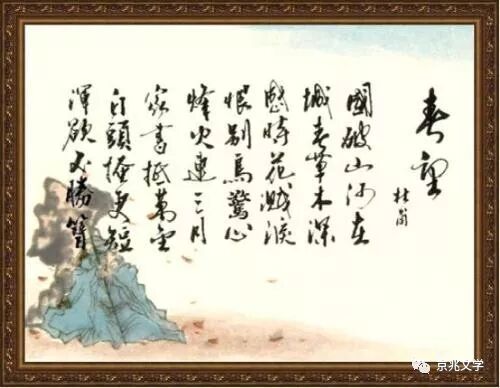 春望
杜甫
國破山河在
城春草木深
感時花濺淚
恨别鳥驚心
烽火連三月
家書抵萬金
白頭搔更短
渾欲不勝簪
京兆文学